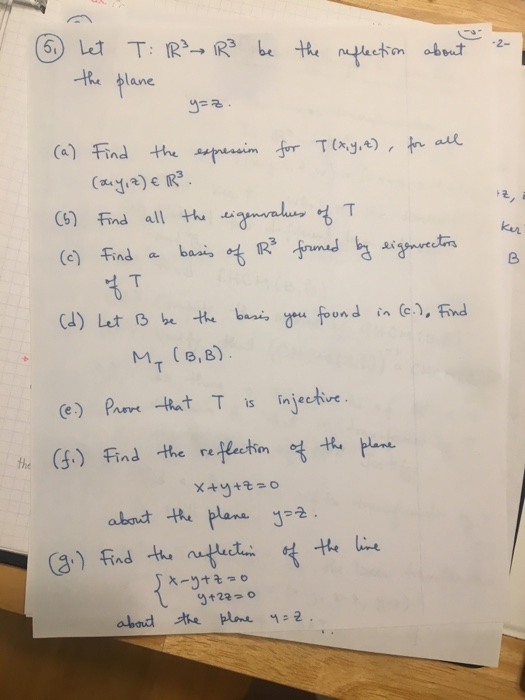 -2-
5. Let T: ℝ³ → ℝ³ be the reflection about
the plane
y=z.
(a) Find the expression for T(x,y,z), for all
(x,y,z) ∈ ℝ³.
(b) Find all the eigenvalues of T
(c) Find a basis of ℝ³ formed by eigenvectors
of T
(d) Let B be the basis you found in (c.). Find
M_T (B,B).
(e.) Prove that T is injective.
(f.) Find the reflection of the plane
x+y+z=0
about the plane y=z.
(g.) Find the reflection of the line
{ x-y+z=0
y+2z=0
about the plane y=z.
Ker
B
the